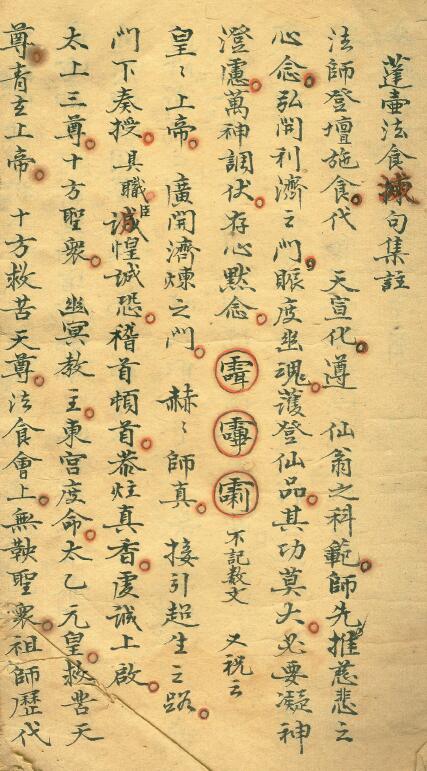 蓬壷法食煉句集註
法師登壇施食代　天宣化遵　仙翁之科範師先推慈悲之
心念弘開利濟之門賑度幽魂護登仙品其功莫大必要凝神
澄慮萬神調伏存心黙念　不記数文　又祝云
皇〻上帝　廣開濟煉之門　赫〻師真　接引超生之路
門下奏授　具職臣　誠惶誠恐稽首頓首恭炷真香虔誠上啟
太上三尊十方聖衆　幽冥教主東宫度命太乙元皇救苦天
尊青玄上帝　十方救苦天尊法食會上無鞅聖衆祖師歷代